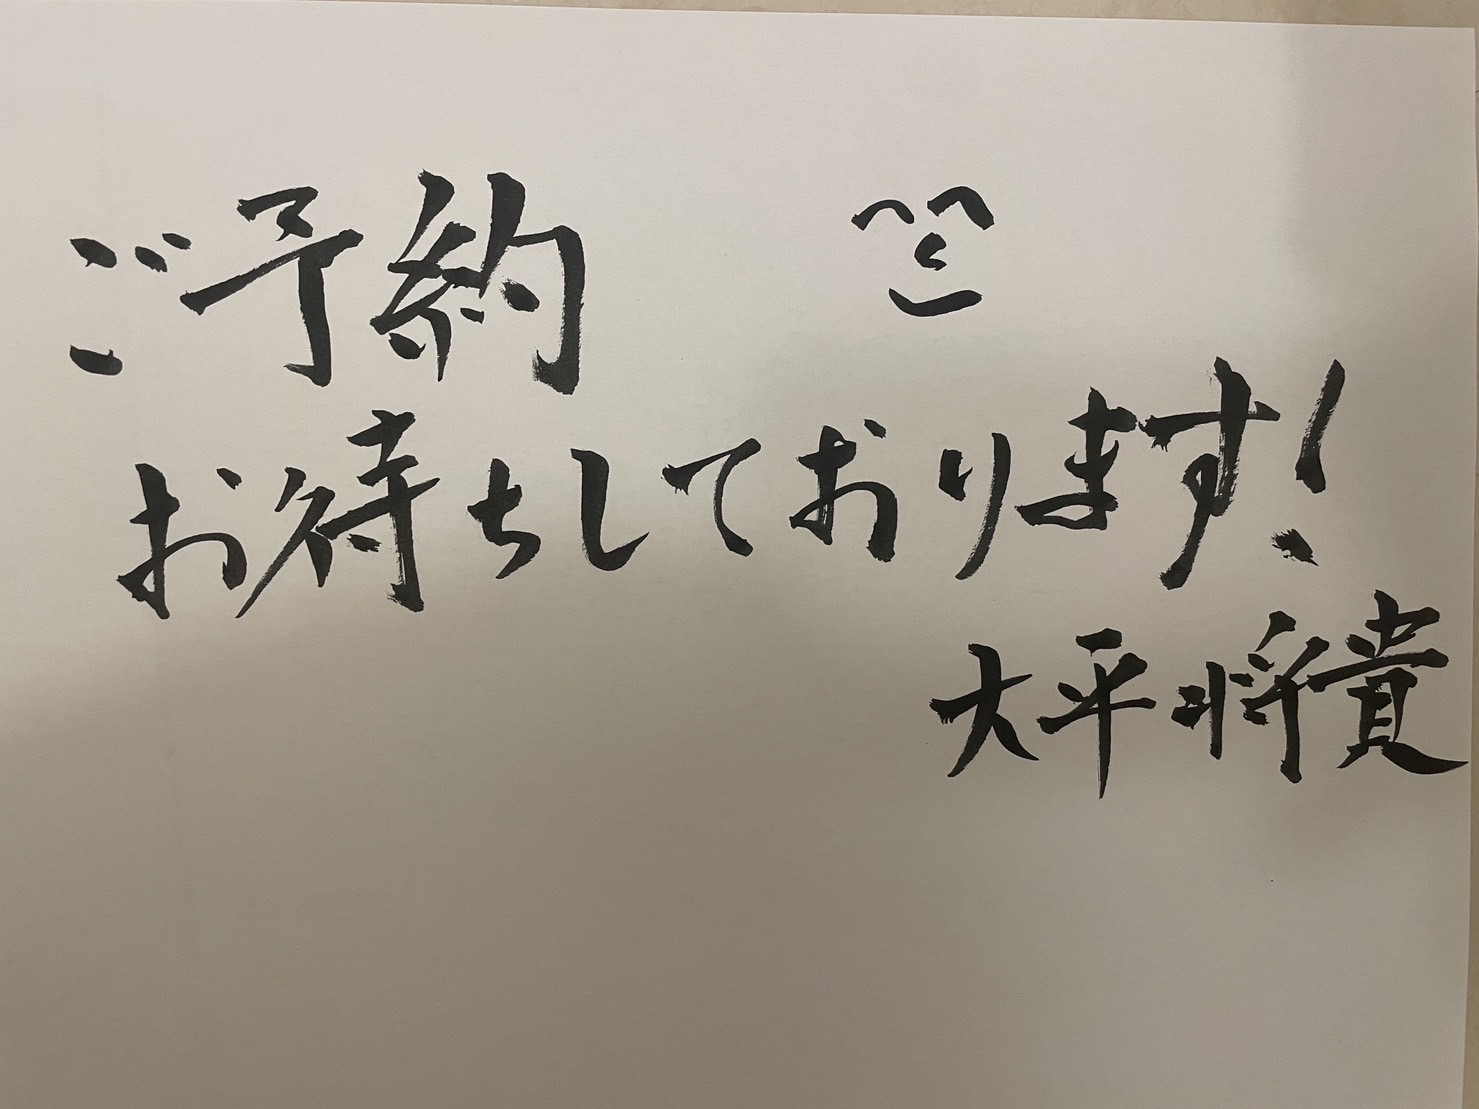 ご予約
お待ちしております!
大平将貴